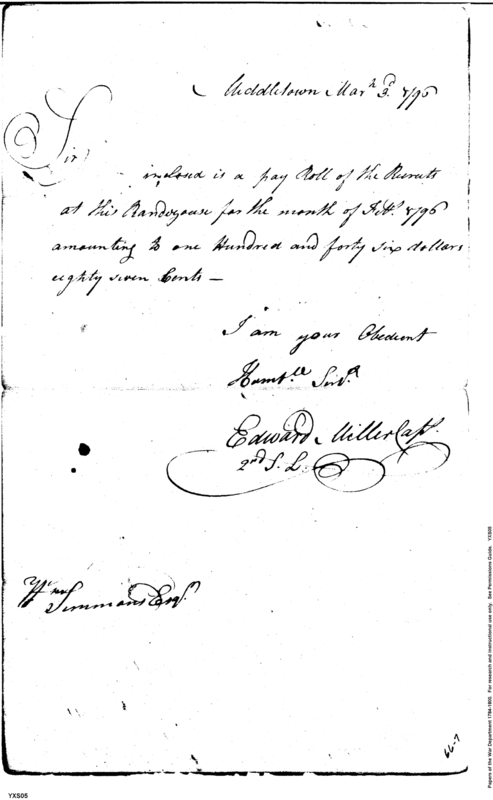 Middletown Mar.h 3.d 1796
Sir
inclosed is a pay Roll of the Recruits
at this Randezouse for the month of Feb.y 1796
amounting to one Hundred and forty six dollars
eighty seven Cents —
I am your Obedient
Humb.le Serv.t
Edward Miller Cap.t
2nd S. L.
Wm Simmons Esq.r
66-7
YXS05
Papers of the War Department 1784-1800. For research and instructional use only. See Permissions Guide. YXS05